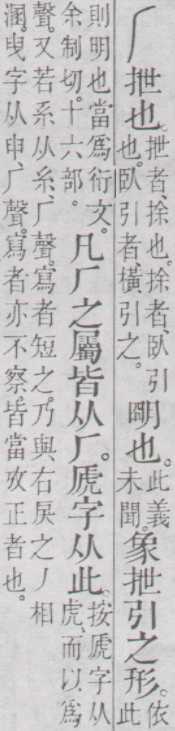 𠂆抴也。抴者、捈也。捈者、臥引也。臥引者橫引之。明也。此義未聞。象抴引之形。依此
則明也當爲衍文。余制切。十六部。凡𠂆之屬皆从𠂆。虒字从此。按虒字从虎、而以爲
聲。又若系从糸、𠂆聲。寫者短之。乃與右戾之丿相
溷。曳字从申、𠂆聲。寫者亦不察。皆當攷正者也。